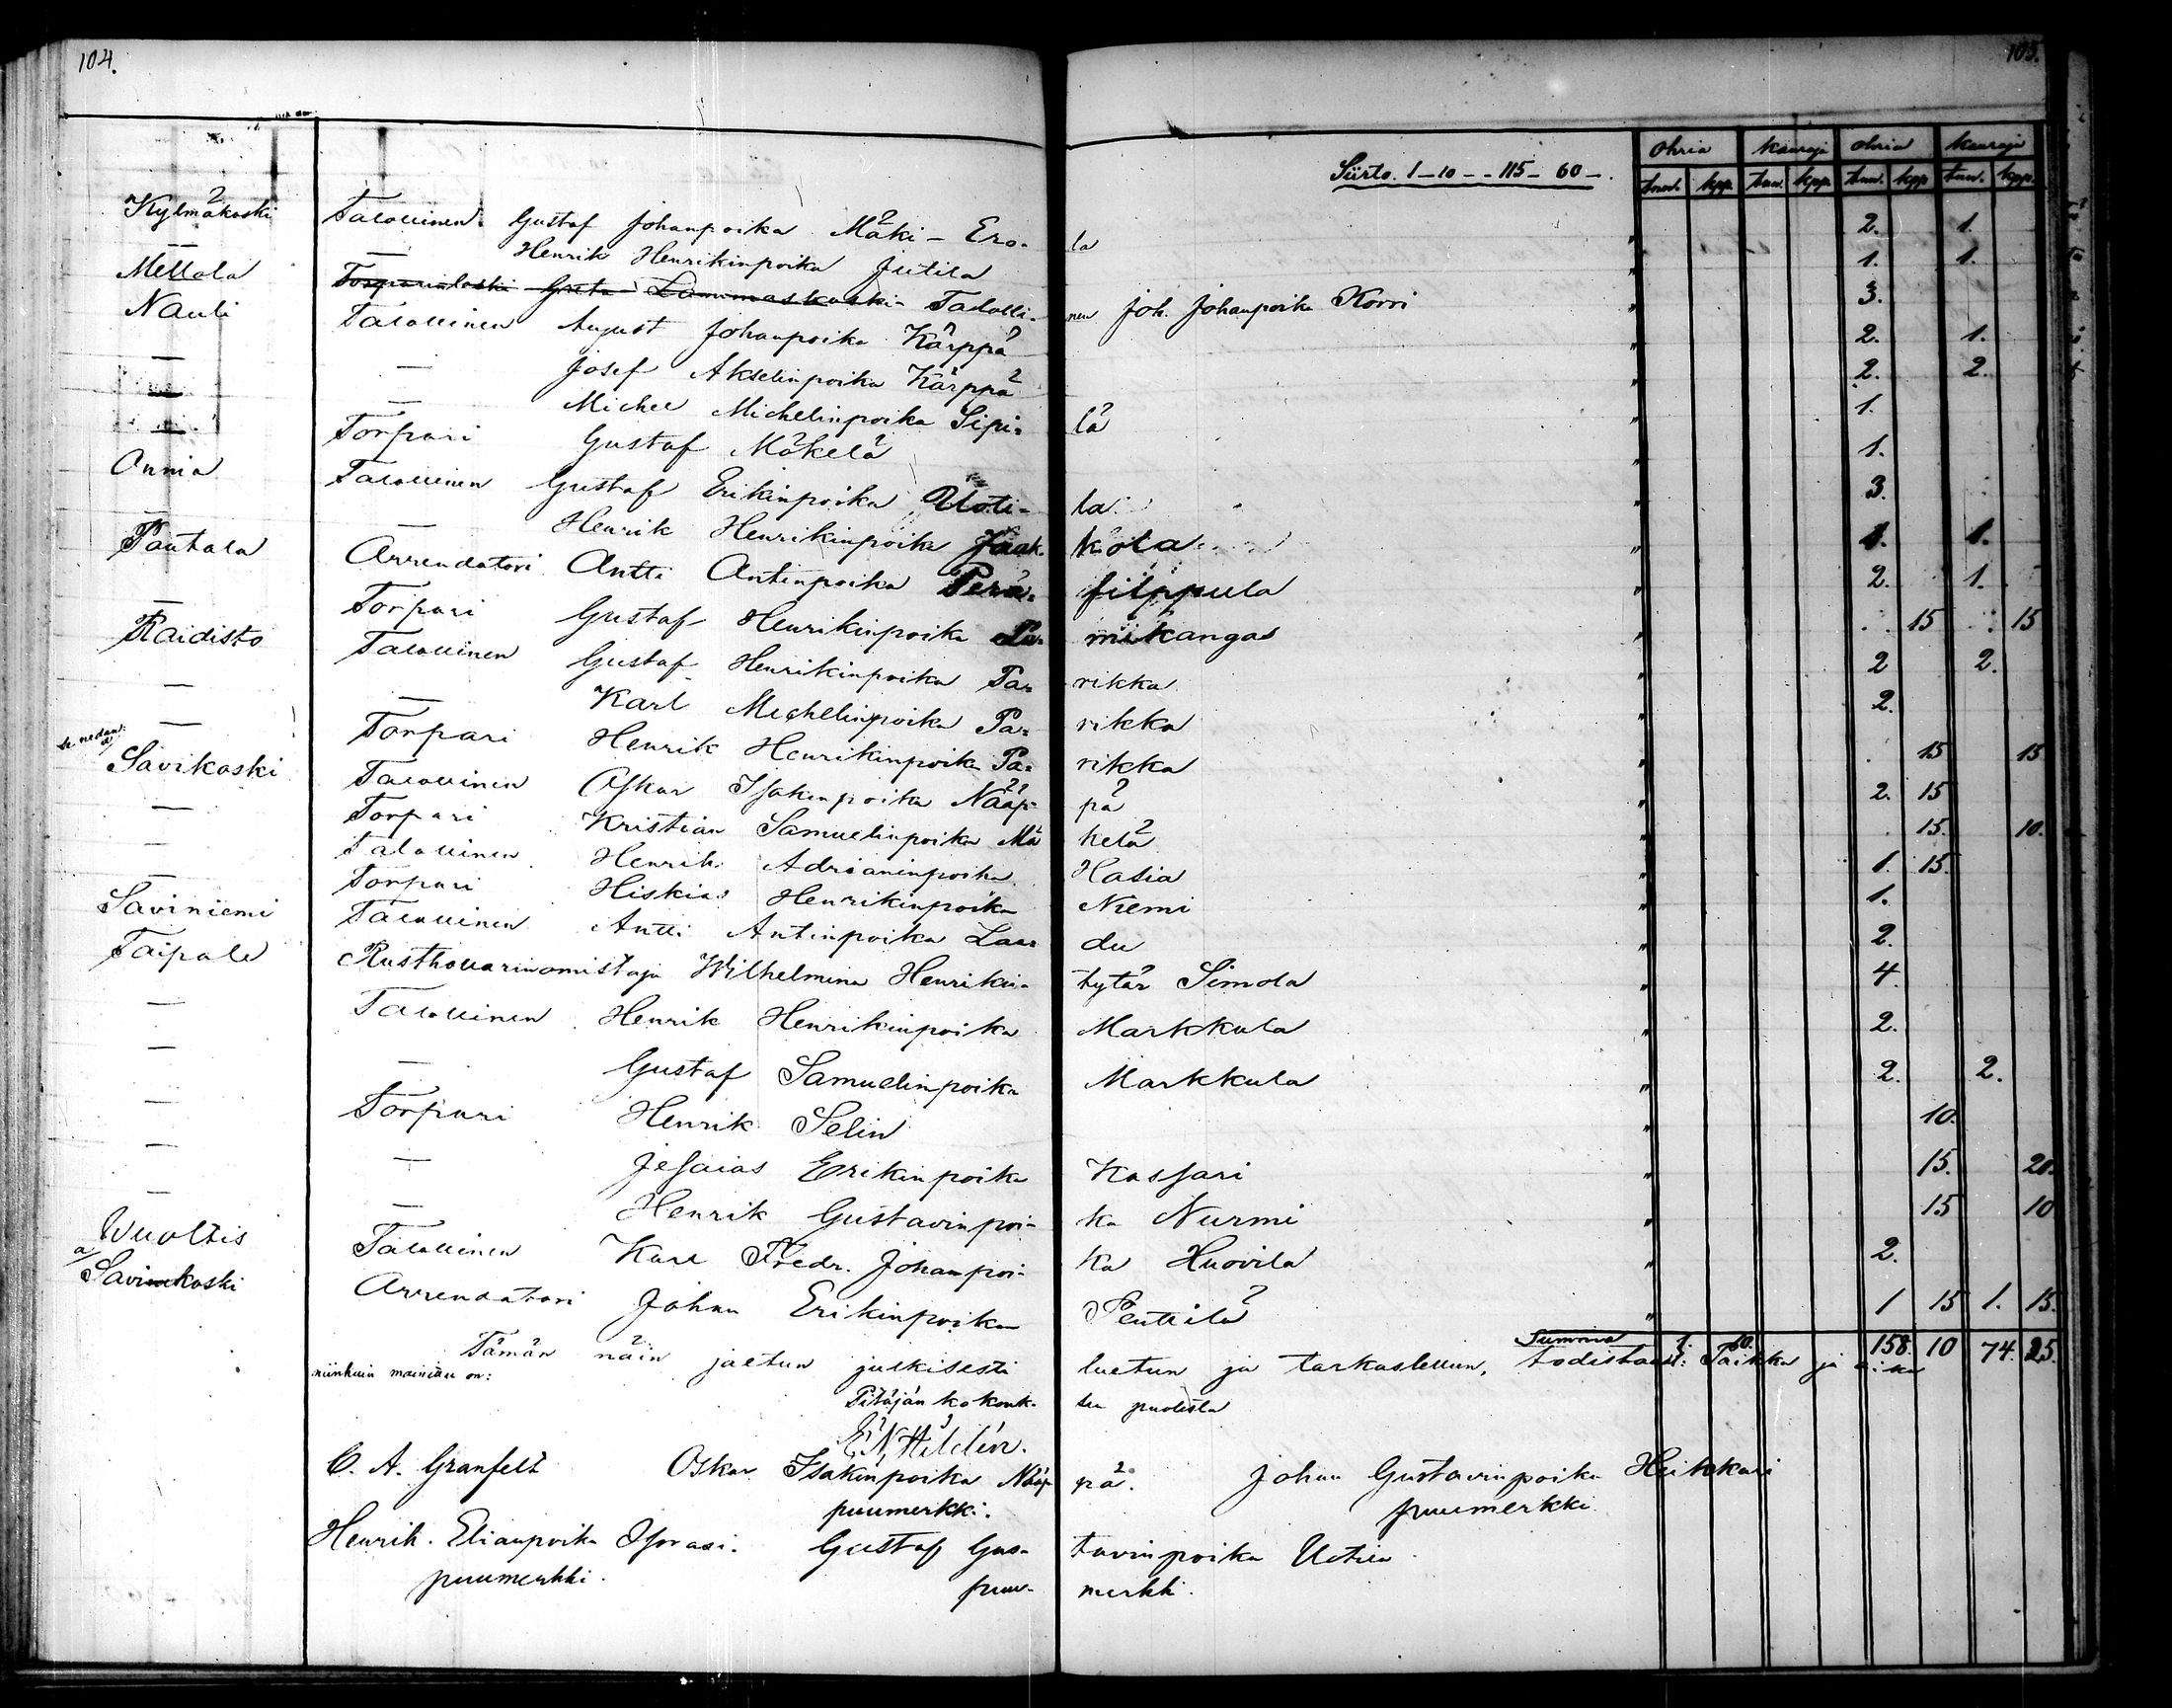 104.
105.
Siirto. 1-10--115-60-.
Ohria Kauroja Ohria Kauroja
tunn. kpp. tunn. kpp. tunn. kpp. tunn. kpp.
Kylmäkoski Talollinen Gustaf Johanpoika Mäki-Ero-la " 2. 1.
— — Henrik Henrikinpoika Jutila " 1. 1.
Mellola Torparinleski Greta Lammaskoski Talolli-nen Joh. Johanpoika Korri " 3.
Nauli Talollinen August Johanpoika Kärppä " 2. 1.
— — Josef Akselinpoika Kärppä " 2. 2.
— — Michel Michelinpoika Sipi=lä " 1.
— Torpari Gustaf Mäkelä " 1.
Onnia Talollinen Gustaf Erikinpoika Uoti-la " 3.
— Henrik Henrikinpoika Jaak-kola " 1. 1.
Pautala Arrendatori Antti Antinpoika Perä=filppula " 2. 1.
— Torpari Gustaf Henrikinpoika nikangas " 15 15
Raidisto Talollinen Gustaf Henrikinpoika Pa=rikka " 2 2.
— — Karl Michelinpoika Pa=rikka " 2.
— Torpari Henrik Henrikinpoika Pa=rikka " 15 15
se nedan: a)
Savikoski Talollinen Oskar Isakinpoika Nääp=pä " 2. 15
— Torpari Kristian Samuelinpoika Mäkelä " 15. 10.
— Talollinen Henrik Adrianinpoika Hasia " 1. 15.
— Torpari Hiskias Henrikinpoika Niemi " 1.
Saviniemi Talollinen Antti Antinpoika Lau=du " 2.
Taipale Rusthollarinomistaja Wilhelmina Henrikin-tytär Simola " 4.
— Talollinen Henrik Henrikinpoika Markkula " 2.
— — Gustaf Samuelinpoika Markkula " 2. 2.
— Torpari Henrik Selin " 10.
— — Jesaias Erikinpoika Kassari " 15. 20.
— — Henrik Gustavinpoi-ka Nurmi " 15 10
Wuoltis Talollinen Karl Fredr. Johanpoi-ka Huovila " 2.
a) Savikoski Arrendatori Johan Erikinpoika Penttilä " 1 15 1. 15.
Summa 1. 10. 158. 10 74. 25.
Tämän näin jaetun julkisesti luetun ja tarkastellun, todistavat: Paikka ja aika
niinkuin mainittu on:
Pitäjän kokouk-sen puolesta
E. N. Hildén.
C. A. Granfelt Oskar Isakinpoika Nääp-pä. Johan Gustavinpoika Heikkari
puumerkki. puumerkki.
Henrik Elianpoika Isorasi. Gustaf Gus-tavinpoika Uotila.
puumerkki. puu-merkki.